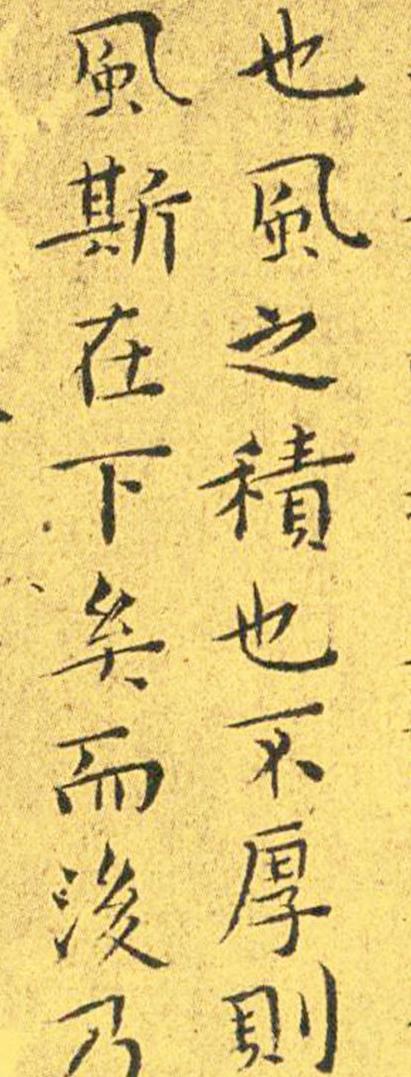 也風之積也不厚則
風斯在下矣而後乃